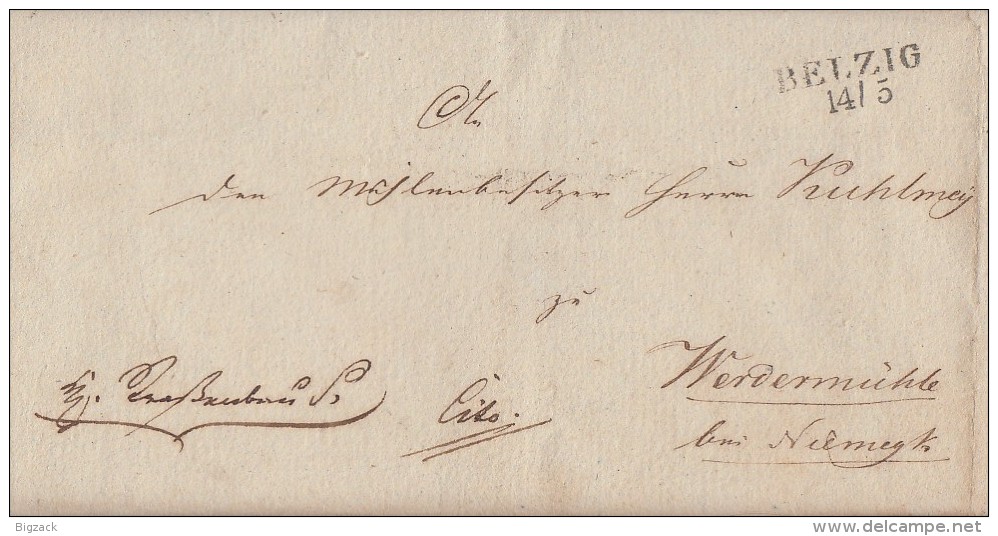 BELZIG
14/5
An
den Mühlenbesitzer Herrn Kuhlmey
zu
Werdermühle
bei Niemegk
Straßenbau S.
Cito.
Bigzack
delcampe.net